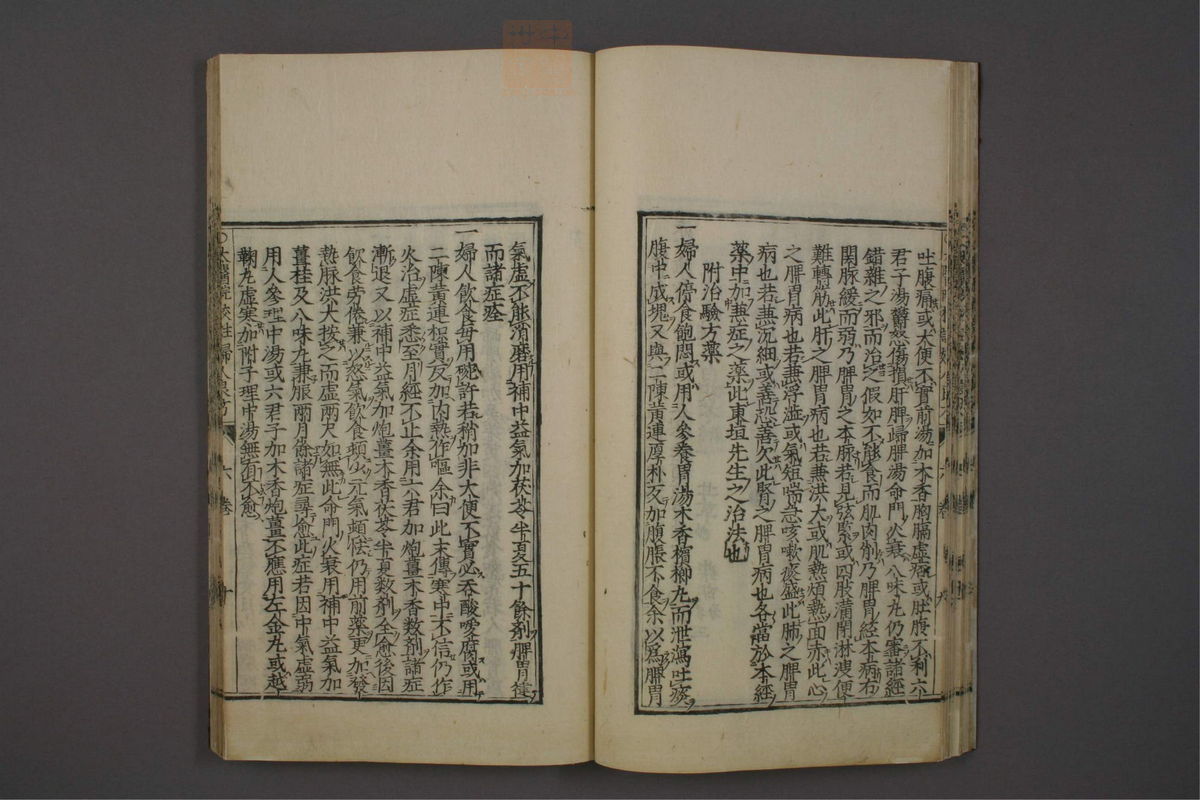 吐腹痛或大便不實前湯加木香胸膈虛痞或肚腹不利六
君子湯鬱怒傷損肝脾歸脾湯命門火衰八味丸仍審諸經
錯雜之邪而治之假如不能食而肌肉削乃脾胃經本病右
關脉緩而弱乃脾胃之本脉若見弦緊或四肢滿閉淋溲便
難轉筋此肝之脾胃病也若兼洪大或肌熱煩熱面赤此心
之脾胃病也若兼浮澁或氣短喘急咳嗽痰盛此肺之脾胃
病也若兼沉細或善恐善欠此腎之脾胃病也各當於本經
藥中加兼症之藥此東垣先生之治法也
附治驗方藥
一婦人停食飽悶或用人參養胃湯木香檳榔丸而泄瀉吐痰
腹中成塊又與二陳黃連厚朴反加腹脹不食余以爲脾胃
氣虛不能消磨用補中益氣加茯苓半夏五十餘劑脾胃健
而諸症痊
一婦人飲食每用碗許若稍加非大便不實必吞酸噯腐或用
二陳黃連枳實反加內熱作嘔余曰此末傳寒中不信仍作
火治虛症悉至月經不止余用六君加炮薑木香數劑諸症
漸退又以補中益氣加炮薑木香茯苓半夏數劑全愈後因
飲食勞倦兼以怒氣飲食頓少元氣頓怯仍用前藥更加發
熱脉洪大按之而虛兩尺如無此命門火衰用補中益氣加
薑桂及八味丸兼服兩月餘諸症尋愈此症若因中氣虛弱
用人參理中湯或六君子加木香炮薑不應用左金丸或越
鞠丸虛寒加附子理中湯無有不愈
六卷
十